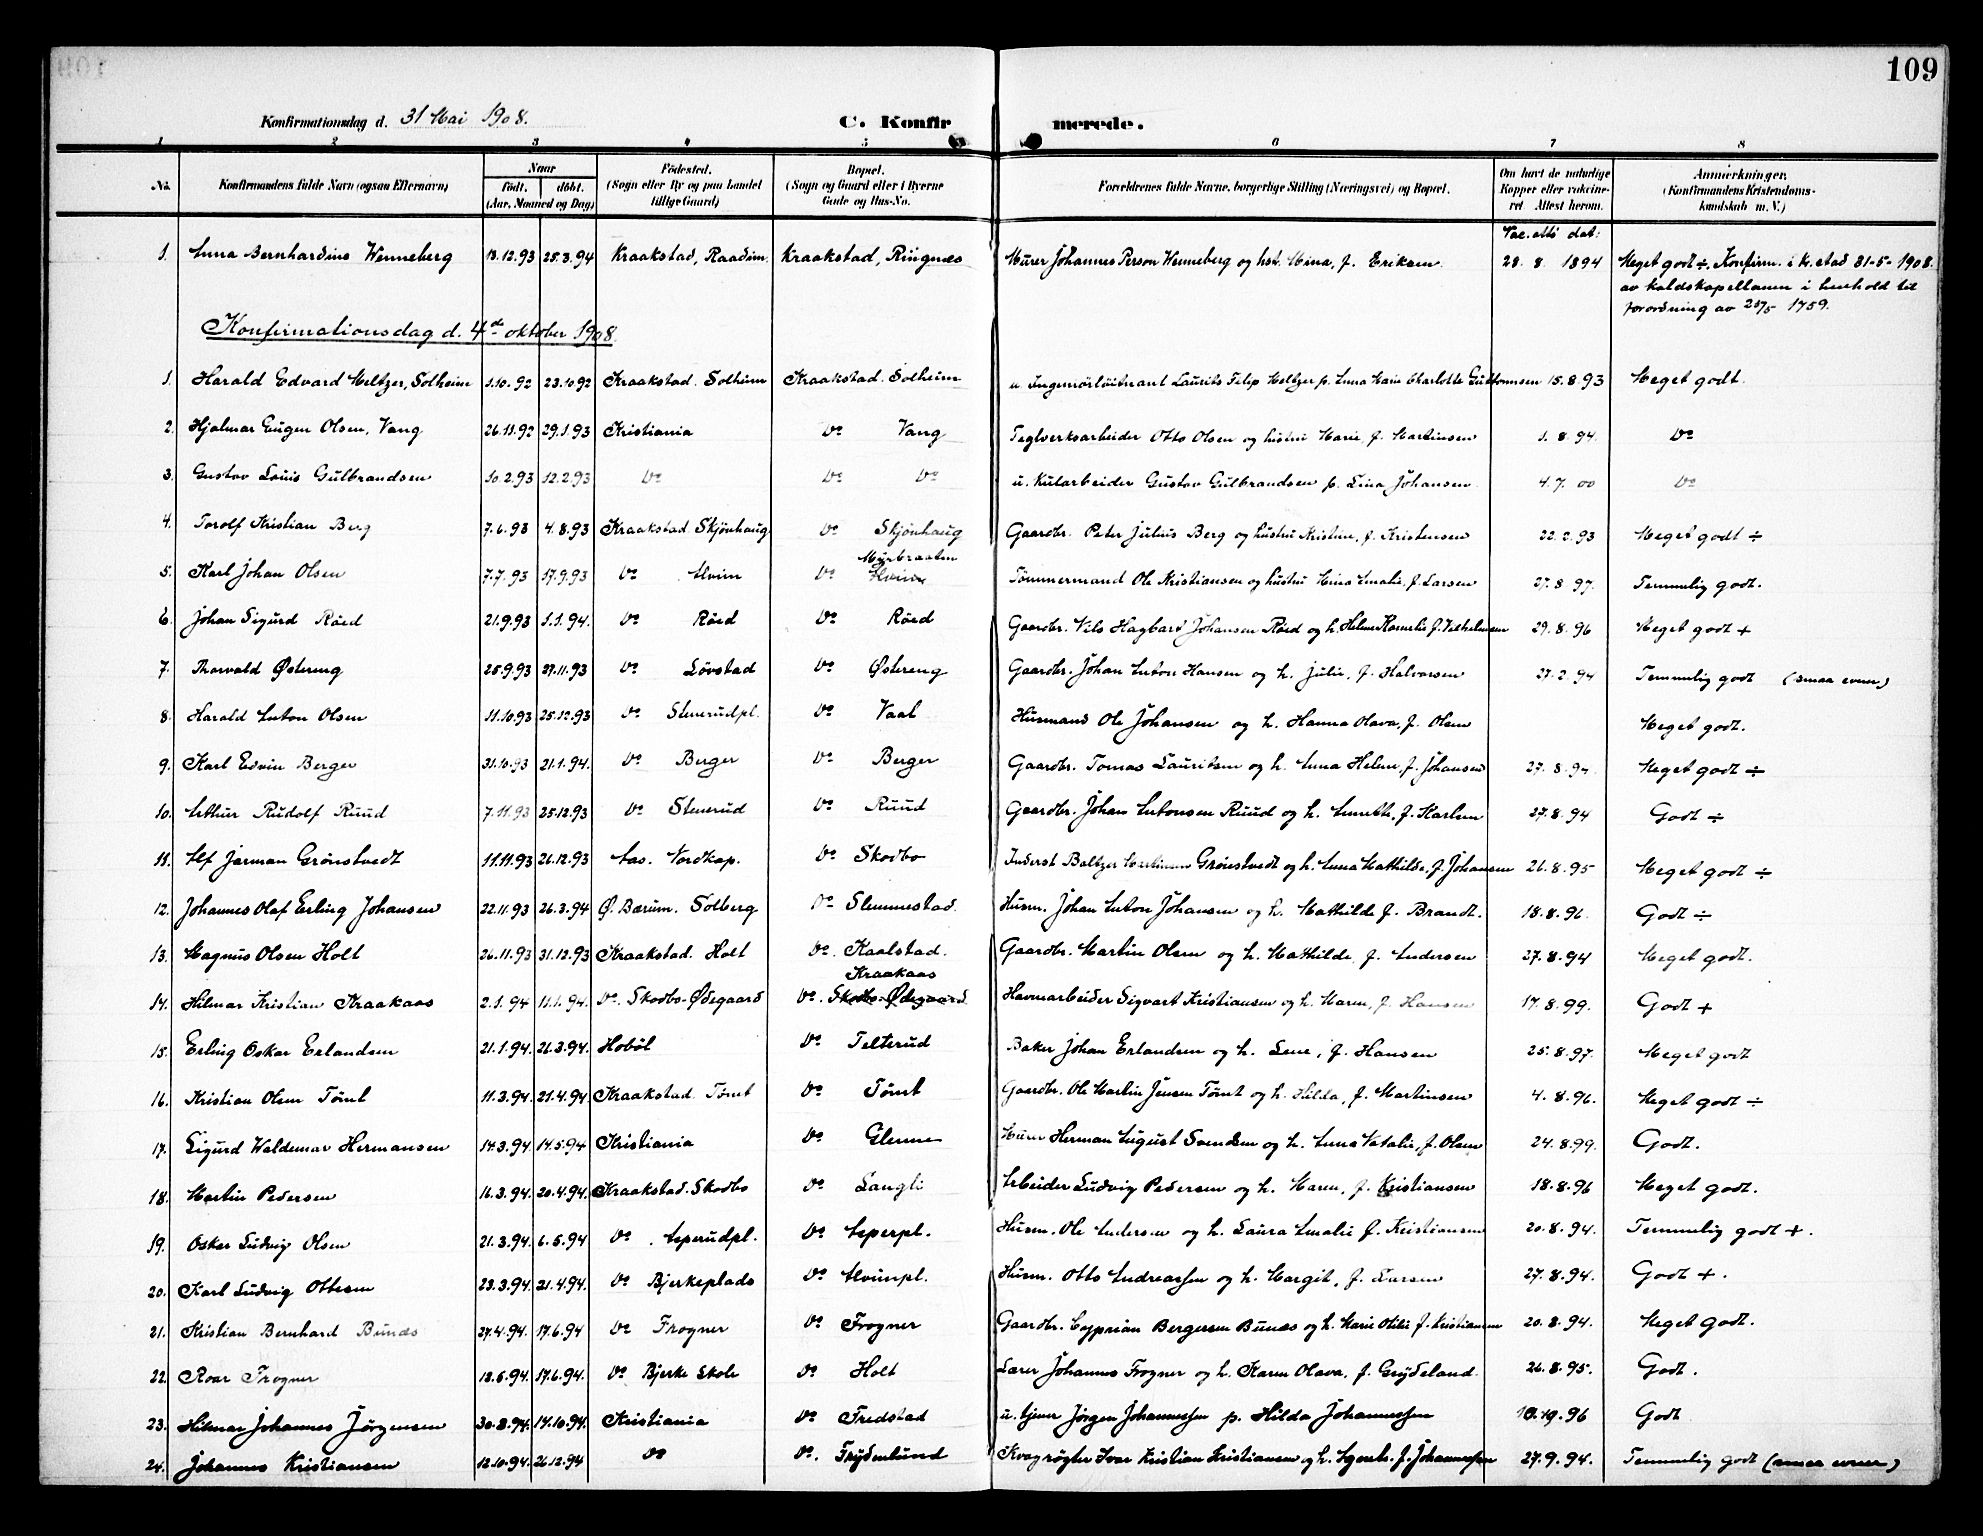 109
Konfirmationsdag d. 31 Mai 1908.
C. Konfirmerede.
1 2 3 4 5 6 7 8
No. Konfirmandens fulde Navn (ogsaa Efternavn) Naar født. døbt. (Aar, Maaned og Dag) Fødested. (Sogn eller By og paa Landet tillige Gaard) Bopæl. (Sogn og Gaard eller i Byerne Gade og Hus-No. Forældrenes fulde Navne, borgerlige Stilling (Næringsvei) og Bopæl. Om havt de naturlige Kopper eller vakcineret Attest herom. Anmerkninger. (Konfirmandens Kristendomskundskab m. V.)
Vac. atts dat:
1. Anna Bernhardine Wenneberg 13.12.93 25.3.94 Kraakstad, Raadim. Kraakstad, Ringnes Murer Johannes Person Wenneberg og hst. Mina, f. Eriksen 28. 8. 1894 Meget godt ÷. Konfirm. i K.stad 31-5-1908.
av kaldskapellanen i henhold til
forordning av 25/5 1759.
Konfirmationsdag d. 4de oktober 1908.
1. Harald Edvard Meltzer, Solheim 1.10.92 23.10.92 Kraakstad. Solheim Kraakstad. Solheim u. Ingeniørløitnant Laurits Filip Meltzer p. Anna Marie Charlotte Guttormsen 15.8.93 Meget godt.
2. Hjalmar Eugen Olsen, Vang 26.11.92 29.1.93 Kristiania Do Vang Teglverksarbeider Otto Olsen og hustru Marie, f. Martinsen 1. 8. 94. Do
3. Gustav Louis Gulbrandsen 10.2.93 12.2.93 Do Do Do u. Kularbeider Gustav Gulbrandsen p. Lina Johansen 4. 7. 00 Do
4. Torolf Kristian Berg 7.6.93 4.8.93 Kraakstad Skjønhaug Do Skjønhaug Gaardbr. Peter Julius Berg og hustru Kristine, f. Kristensen 22. 2. 93 Meget godt ÷
Myrbraaten
5. Karl Johan Olsen 7.7.93 17.9.93 Do Hvim Do Hvim Tømmermand Ole Kristiansen og hustru Mina Amalie, f. Larsen 27. 8. 97. Temmelig godt.
6. Johan Sigurd Røed 21.9.93 1.1.94. Do Røed Do Røed Gaardbr. Nils Hagbard Johansen Røed og h. Helene Kornelie f. Vilhelmsen 29. 8. 96 Meget godt +
7. Thorvald Østereng 25.9.93 27.11.93 Do Løvstad Do Østereng Gaardbr. Johan Anton Hansen og h. Julie, f. Halvorsen 27. 2. 94 Temmelig godt (smaa evner)
8. Harald Anton Olsen 11.10.93 25.12.93 Do Stenerudpl. Do Vaal Husmand Ole Johansen og h. Hanna Olava, f. Olsen Meget godt.
9. Karl Edvin Berger 31.10.93 21.1.94. Do Berger Do Berger Gaardbr. Tomas Lauritsen og h. Anna Helene, f. Johansen 27. 8. 94 Meget godt ÷
10. Arthur Rudolf Ruud 7.11.93 25.12.93 Do Stenerud Do Ruud Gaardbr. Johan Antonsen Ruud og h. Annette, f. Karlsen 27. 8. 94 Godt ÷
11. Alf Jarman Grønstvedt 11.11.93 26.12.93 Aas. Nordkap. Do Skodbo Inderst Baltzer Martinsen Grønstvedt og h. Anna Mathilde, f. Johansen 26. 8. 95 Meget godt ÷
12. Johannes Olaf Erling Johansen 22.11.93 26.3.94 Ø. Bærum. Solberg Do Slemmestad. Husm. Johan Anton Johansen og h. Mathilde f. Brandt. 18. 8. 96. Godt ÷
13. Magnus Olsen Holt 26.11.93 31.12.93 Kraakstad. Holt Do. Kaalstad. Gaardbr. Martin Olsen og h. Mathilde, f. Andersen 27. 8. 94 Meget godt.
Kraakaas
14. Hilmar Kristian Kraakaas 2.1.94 11.1.94. Do. Skodbo-Ødegaard Do. Skodbo-Ødegaard Havnearbeider Sigvart Kristiansen og h. Maren, f. Hansen 17. 8. 99. Godt +
15. Erling Oskar Erlandsen 21.1.94. 26.3.94. Hobøl Do Telterud Baker Johan Erlandsen og h. Lene, f. Hansen 25. 8. 97. Meget godt
16. Kristian Olsen Tømt 11.3.94. 21.4.94 Kraakstad. Tømt Do Tømt Gaardbr. Ole Martin Jensen Tømt og h. Hilda, f. Martinsen 4. 8. 96. Meget godt ÷
17. Sigurd Waldemar Hermansen 14.3.94. 14.5.94 Kristiania Do Glenne Murer Herman August Svendsen og h. Anna Natalie, f. Olsen 24. 8. 99. Godt.
18. Martin Pedersen 16.3.94. 20.4.94. Kraakstad. Skodbo Do Langli Arbeider Ludvig Pedersen og h. Maren, f. Kristiansen 18. 8. 96 Meget godt.
19. Oskar Ludvig Olsen 21.3.94. 6.5.94 Do Asperudpl. Do Asperpl. Husm. Ole Andersen og h. Laura Amalie f. Kristiansen 20. 8. 94. Temmelig godt +.
20. Karl Ludvig Ottesen 23.3.94. 21.4.94. Do Bjerkeplads Do Hvimpl. Husm. Otto Andreassen og h. Margit, f. Larsen 27. 8. 94. Godt +.
21. Kristian Bernhard Bunæs 27.4.94. 17.6.94 Do Frogner Do Frogner Gaardbr. Cyprian Bergersen Bunæs og h. Marie Otilie f. Kristiansen 20. 8. 94. Meget godt.
22. Roar Frogner 12.5.94. 17.6.94. Do Bjerke Skole Do Holt Lærer Johannes Frogner og h. Karen Olava, f. Grydeland. 26. 8. 95. Godt.
23. Hilmar Johannes Jørgensen 30.8.94. 14.10.94. Kristiania Do Fredstad u. tjener Jørgen Johannessen p. Hilda Johannessen 10.10.96 Godt
24. Johannes Kristiansen 12.10.94. 26.12.94 Do Do. Frydenlund Kvægrøgter Ivar Kristian Kristiansen og h. Agnete, f. Johannessen 27. 9. 94. Temmelig godt (smaa evner)